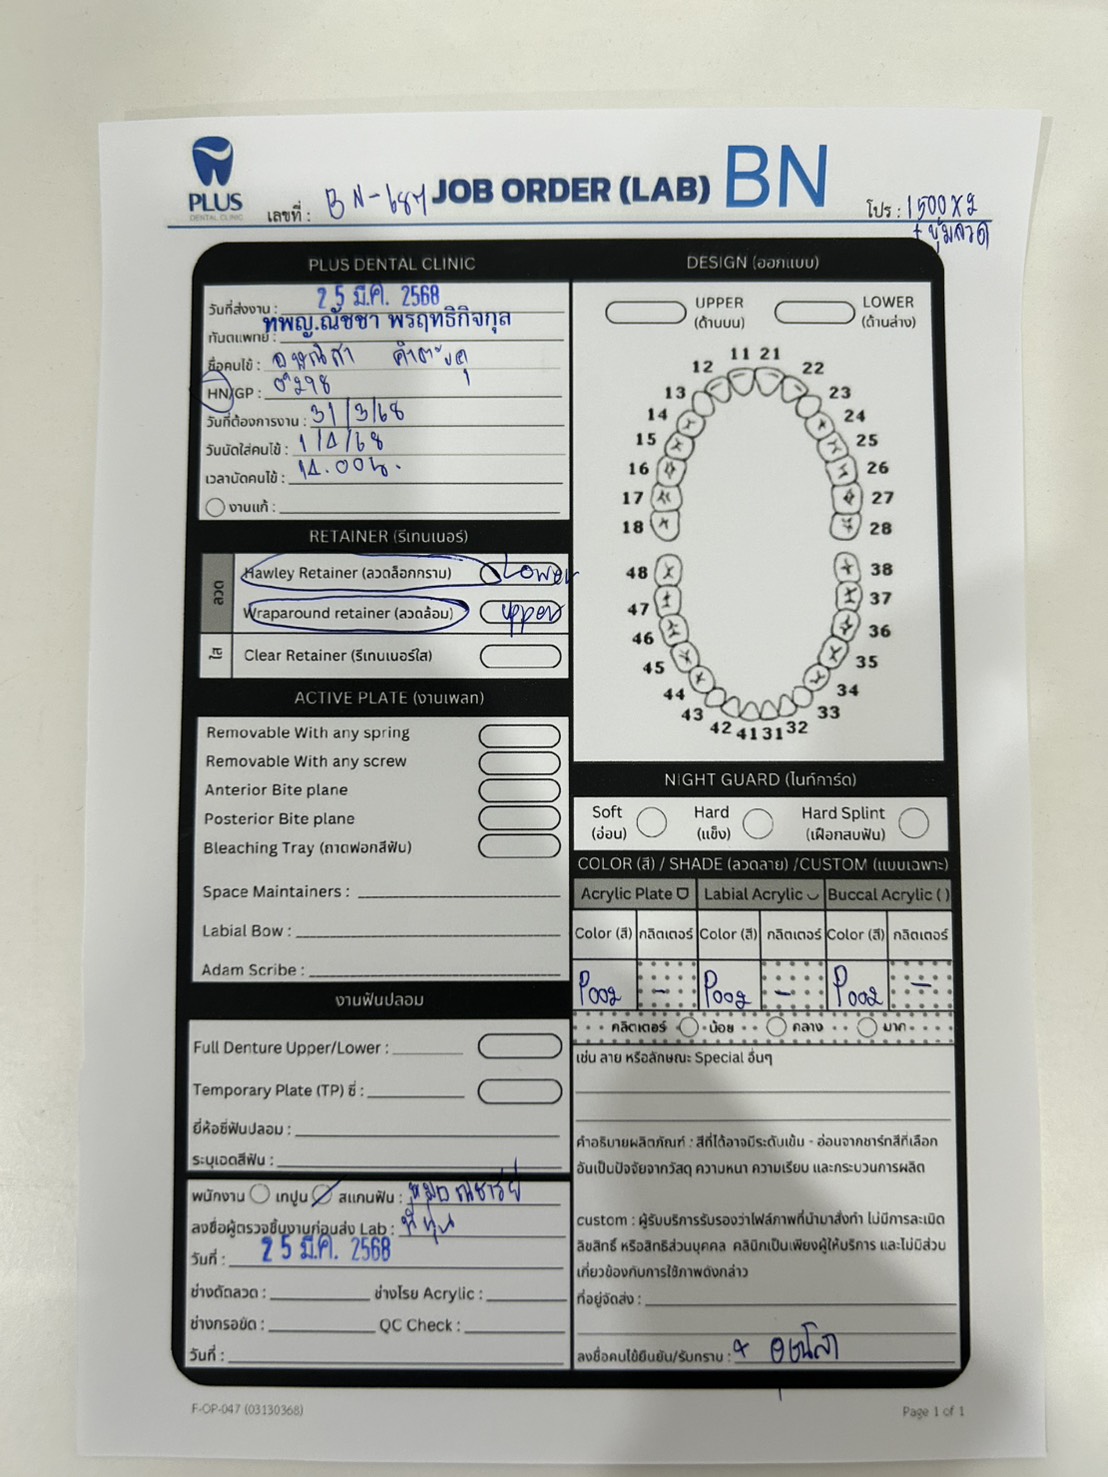 PLUS
DENTAL CLINIC
เลขที่ : BN-687 JOB ORDER (LAB) BN
โปร : 1500 x 2
+ หุ้มลวด
PLUS DENTAL CLINIC
วันที่ส่งงาน : 25 มี.ค. 2568
ทันตแพทย์ : ทพญ.ณัชชา พรฤทธิกิจกุล
ชื่อคนไข้ :
HN/GP : 0298
วันที่ต้องการงาน : 31/3/68
วันนัดใส่คนไข้ : 1/4/68
เวลานัดคนไข้ : 14.00 น.
งานแก้ :
RETAINER (รีเทนเนอร์)
ลวด
Hawley Retainer (ลวดล็อกกราม) Lower
Wraparound retainer (ลวดล้อม) upper
ใส
Clear Retainer (รีเทนเนอร์ใส)
ACTIVE PLATE (งานเพลท)
Removable With any spring
Removable With any screw
Anterior Bite plane
Posterior Bite plane
Bleaching Tray (ถาดฟอกสีฟัน)
Space Maintainers :
Labial Bow :
Adam Scribe :
งานฟันปลอม
Full Denture Upper/Lower :
Temporary Plate (TP) ซี่ :
ยี่ห้อซี่ฟันปลอม :
ระบุเฉดสีฟัน :
พนักงาน เทปูน สแกนฟัน :
ลงชื่อผู้ตรวจชิ้นงานก่อนส่ง Lab :
วันที่ : 25 มี.ค. 2568
ช่างดัดลวด : ช่างโรย Acrylic :
ช่างกรอขัด : QC Check :
วันที่ :
DESIGN (ออกแบบ)
UPPER
(ด้านบน)
LOWER
(ด้านล่าง)
11 21
12 22
13 23
14 24
15 25
16 26
17 27
18 28
48 38
47 37
46 36
45 35
44 34
43 33
42 41 31 32
NIGHT GUARD (ไนท์การ์ด)
Soft
(อ่อน)
Hard
(แข็ง)
Hard Splint
(เฝือกสบฟัน)
COLOR (สี) / SHADE (ลวดลาย) /CUSTOM (แบบเฉพาะ)
Acrylic Plate Labial Acrylic Buccal Acrylic ( )
Color (สี) กลิตเตอร์ Color (สี) กลิตเตอร์ Color (สี) กลิตเตอร์
P002 - P002 - P002 -
กลิตเตอร์ น้อย กลาง มาก
เช่น ลาย หรือลักษณะ Special อื่นๆ
คำอธิบายผลิตภัณฑ์ : สีที่ได้อาจมีระดับเข้ม - อ่อนจากชาร์ทสีที่เลือก
อันเป็นปัจจัยจากวัสดุ ความหนา ความเรียบ และกระบวนการผลิต
custom : ผู้รับบริการรับรองว่าไฟล์ภาพที่นำมาสั่งทำ ไม่มีการละเมิด
ลิขสิทธิ์ หรือสิทธิส่วนบุคคล คลินิกเป็นเพียงผู้ให้บริการ และไม่มีส่วน
เกี่ยวข้องกับการใช้ภาพดังกล่าว
ที่อยู่จัดส่ง :
ลงชื่อคนไข้ยืนยัน/รับทราบ :
F-OP-047 (03130368)
Page 1 of 1